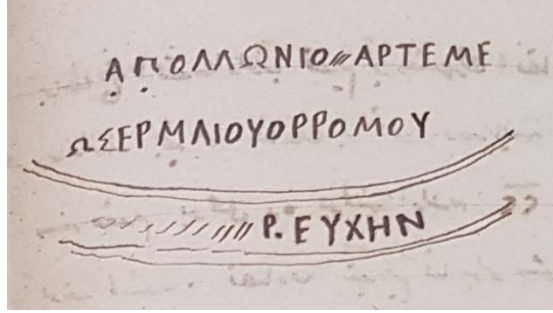 ΑΠΟΛΛΩΝΙΟ ΑΡΤΕΜΕ
ΩΣΕΡΜΛΙΟΥΟΡΡΟΜΟΥ
Ρ. ΕΥΧΗΝ